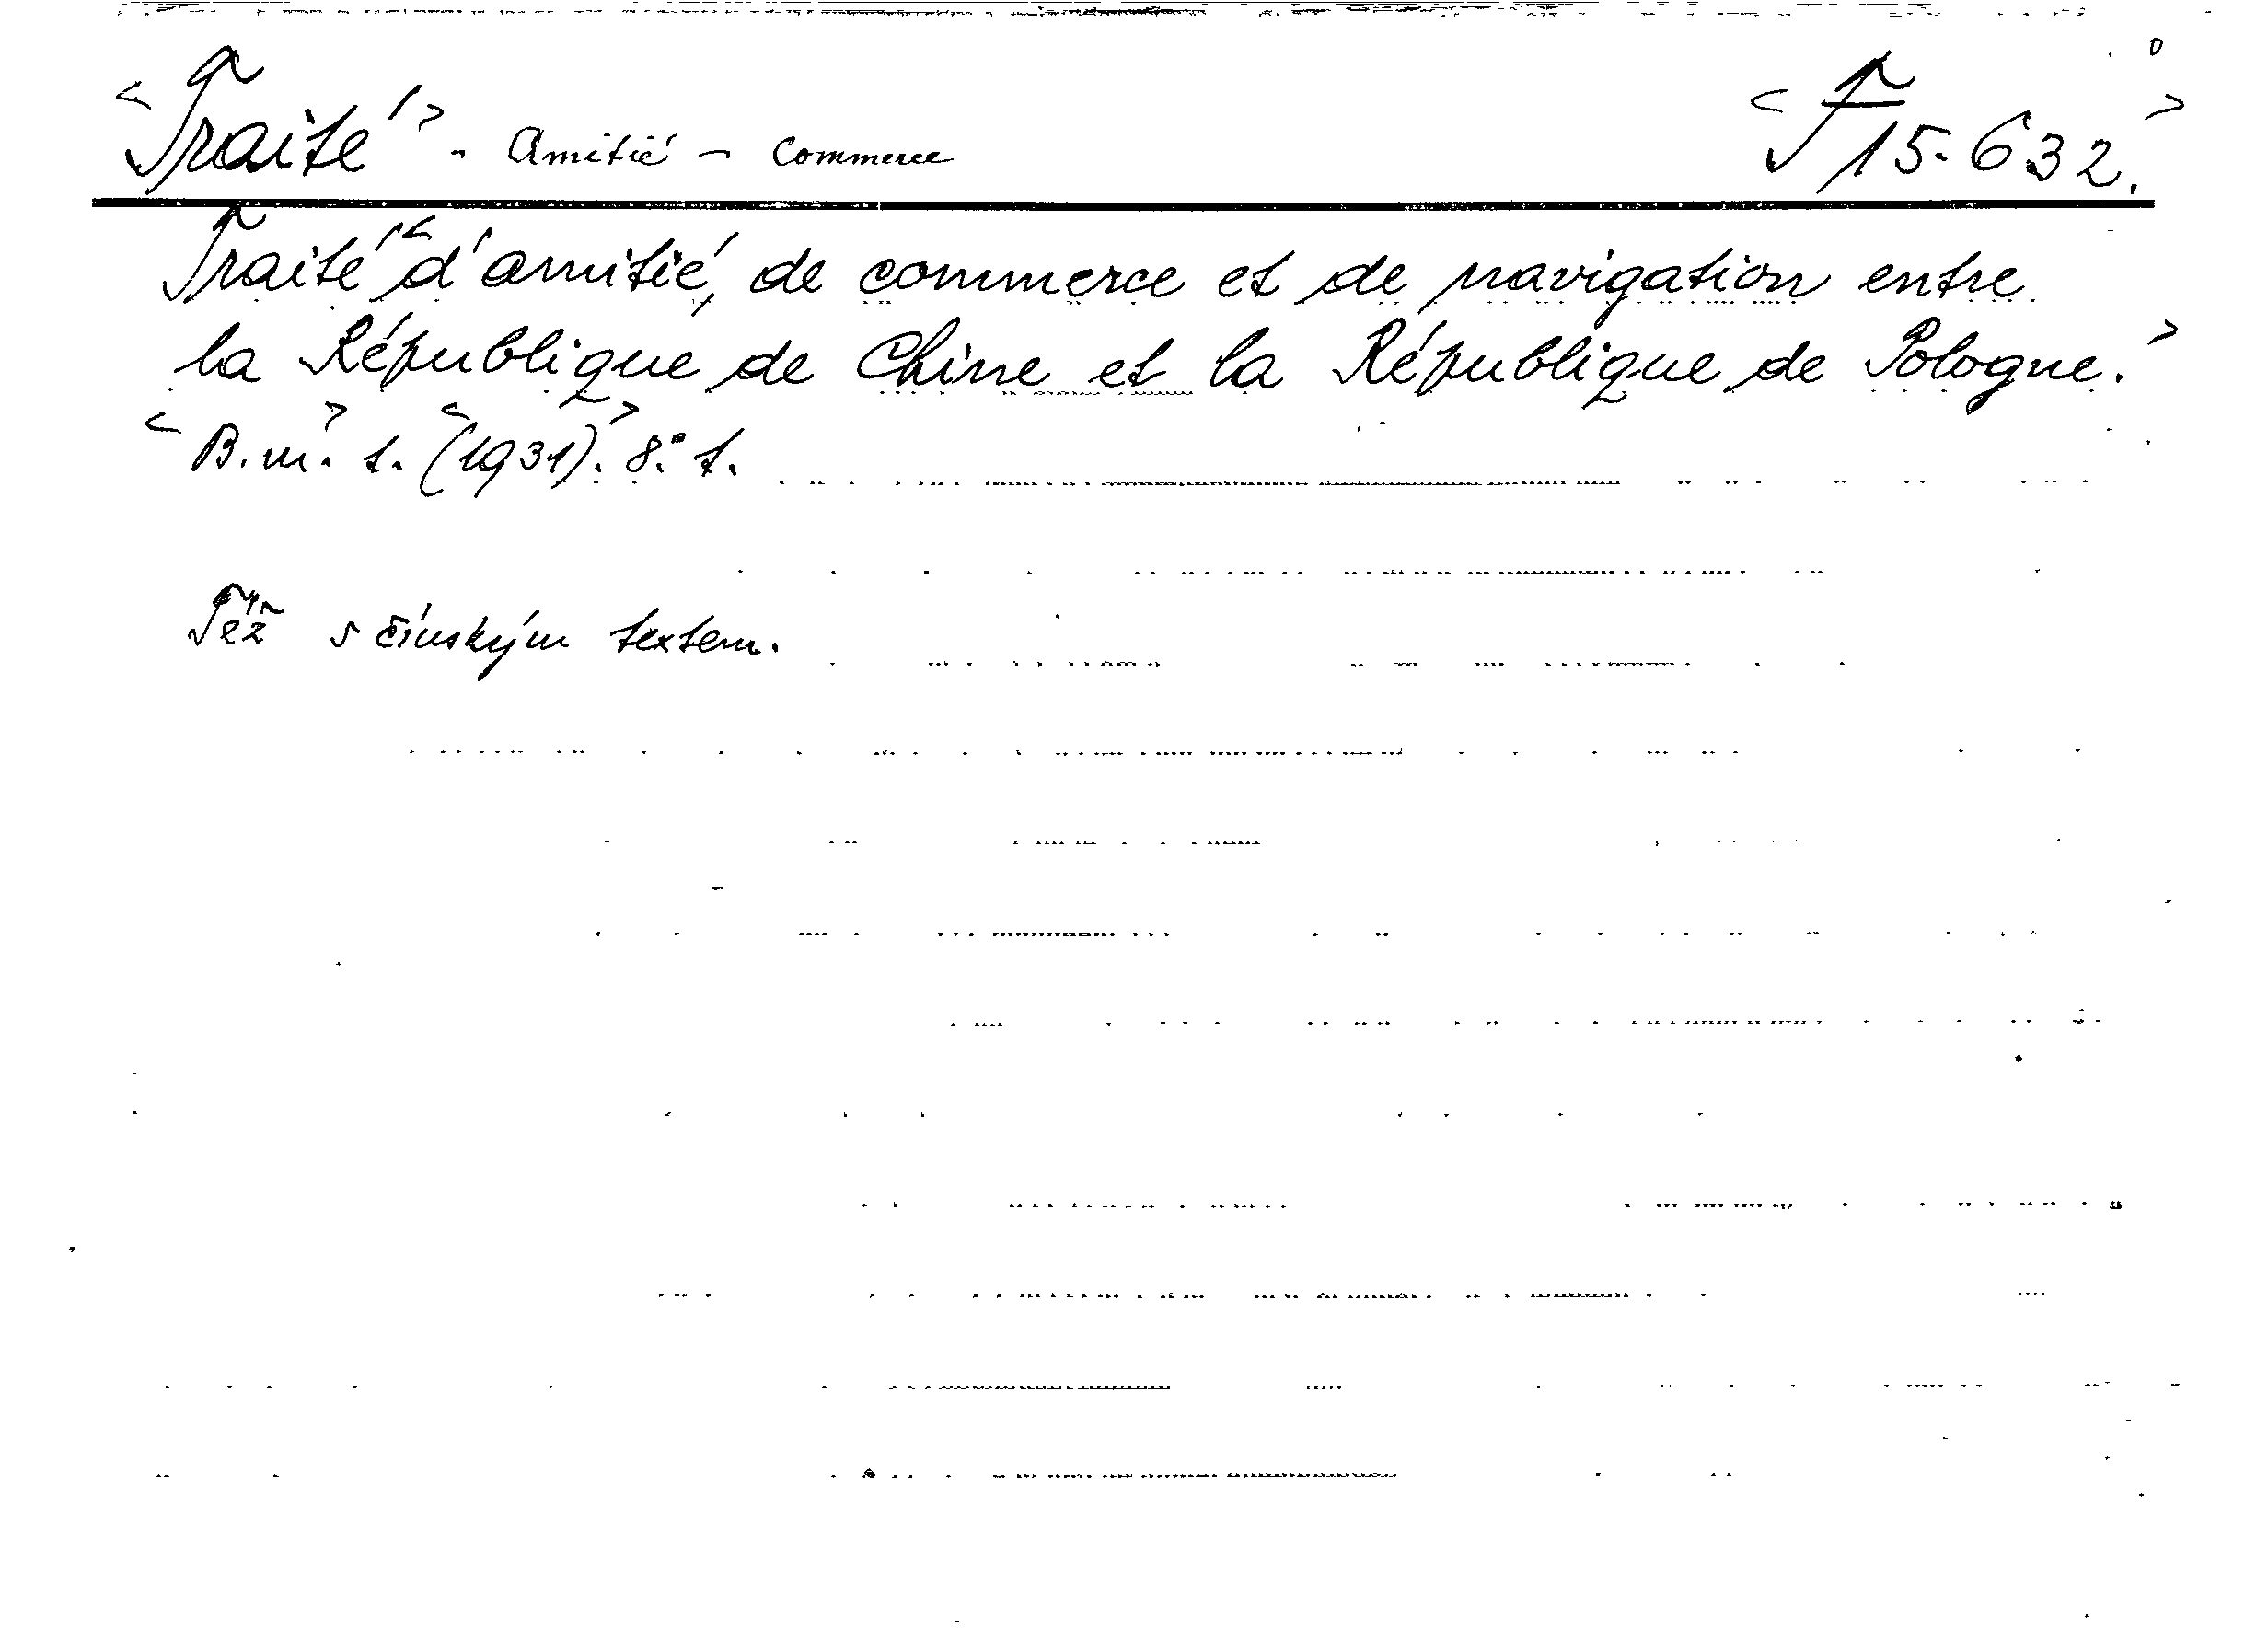 <Traité> - Amitié - Commerce <F 15.632.>
Traité <d'amitié, de commerce et de navigation entre
la République de Chine et la République de Pologne.>
<B. m.> t. <(1931).> 8.° t.
Též s čínským textem.